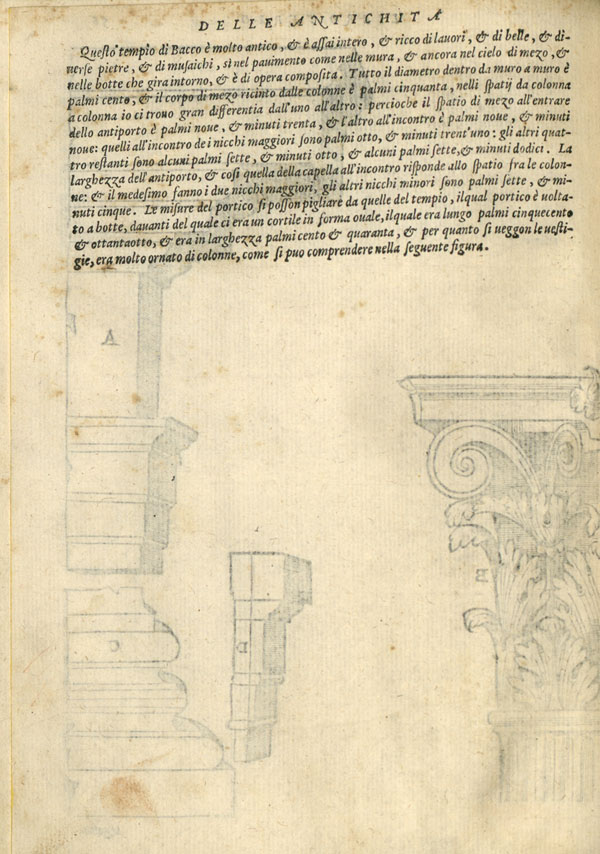 DELLE ANTICHITA
Questo tempio di Bacco è molto antico, & è assai intero, & ricco di lauori, & di belle, & di-
uerse pietre, & di musaichi, sì nel pauimento come nelle mura, & ancora nel cielo di mezo, &
nelle botte che gira intorno, & è di opera composita. Tutto il diametro dentro da muro a muro è
palmi cento, & il corpo di mezo ricinto dalle colonne è palmi cinquanta, nelli spatij da colonna
a colonna io ci trouo gran differentia dall'uno all'altro: percioche il spatio di mezo all'entrare
dello antiporto è palmi noue, & minuti trenta, & l'altro all'incontro è palmi noue, & minuti
noue: quelli all'incontro de i nicchi maggiori sono palmi otto, & minuti trent'uno: gli altri quat-
tro restanti sono alcuni palmi sette, & minuti otto, & alcuni palmi sette, & minuti dodici. La
larghezza dell'antiporto, & cosi quella della capella all'incontro risponde allo spatio fra le colon-
ne: & il medesimo fanno i due nicchi maggiori, gli altri nicchi minori sono palmi sette, & mi-
nuti cinque. Le misure del portico si posson pigliare da quelle del tempio, ilqual portico è uolta-
to a botte, dauanti del quale ci era un cortile in forma ouale, ilquale era lungo palmi cinquecento
& ottantaotto, & era in larghezza palmi cento & quaranta, & per quanto si ueggon le uesti-
gie, era molto ornato di colonne, come si puo comprendere nella seguente figura.
A
B
C
D